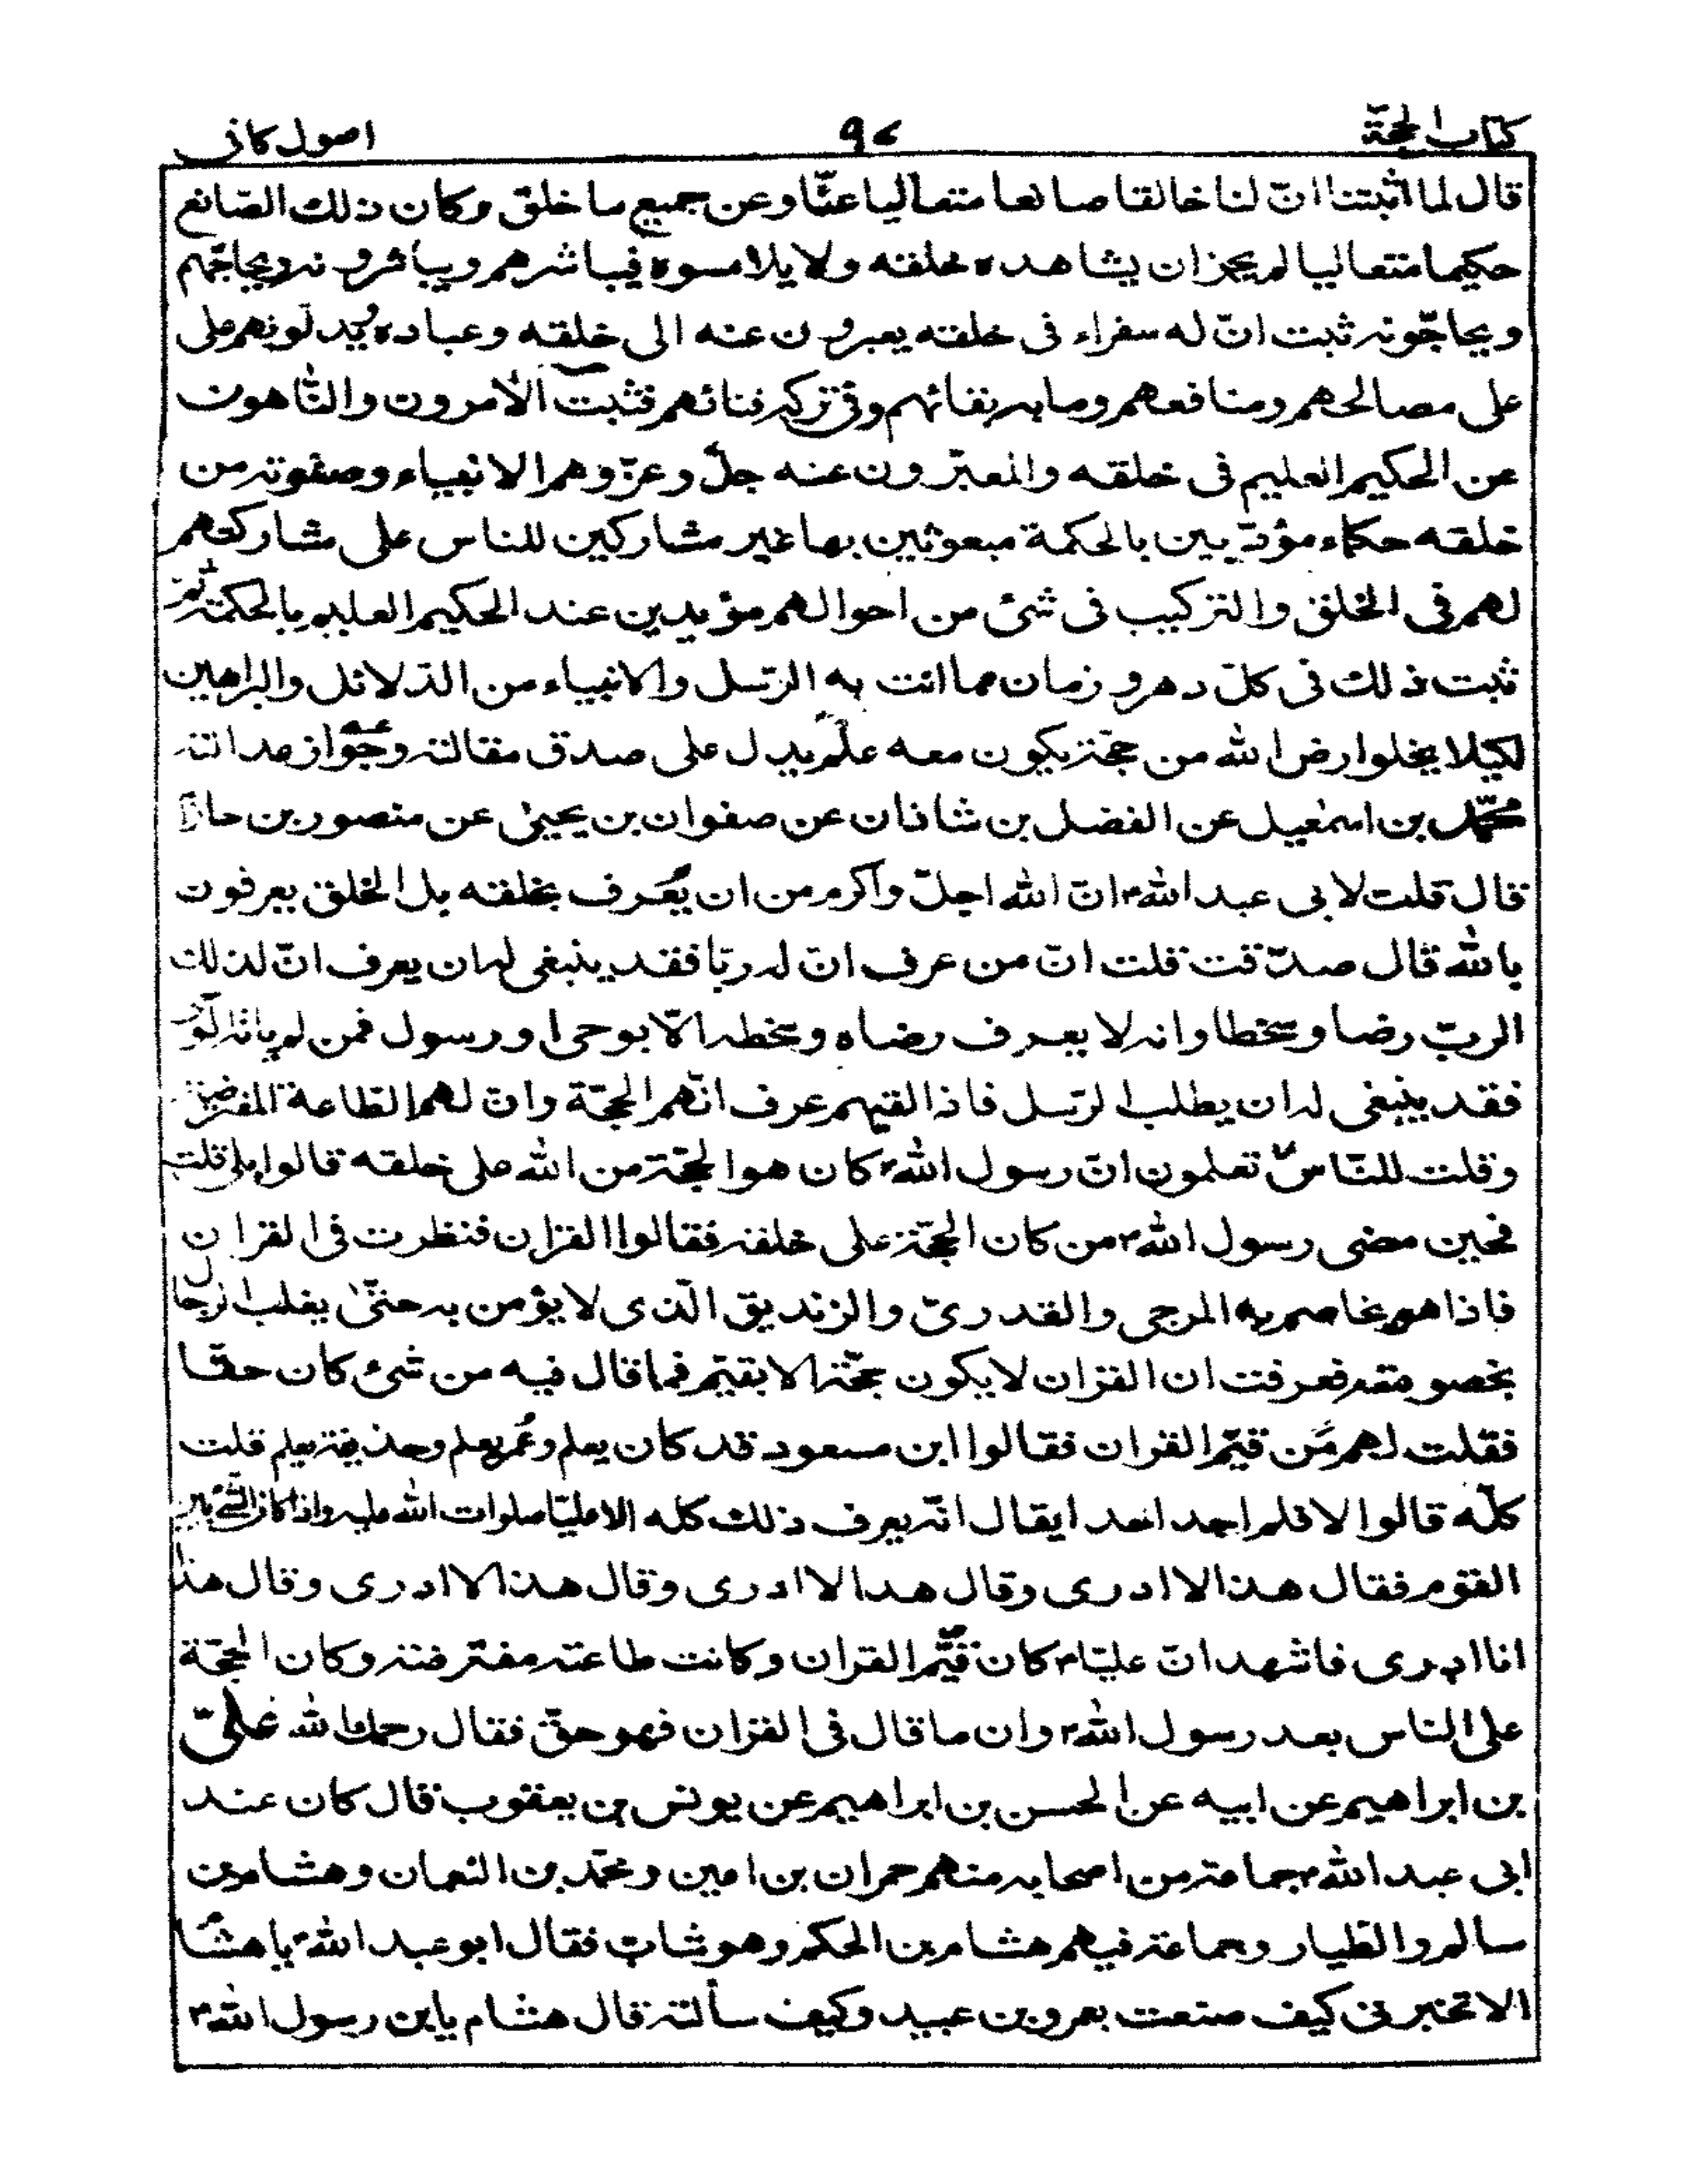 كتاب الحجّة ٩٧ اصول كافى
قال لما اثبتنا انّ لنا خالقا صانعا متعاليا عنّا وعن جميع ما خلق وكان ذلك الصّانع
حكيما متعاليا لم يجز ان يشاهده خلقه ولا يلامسوه فيباشرهم ويباشرونه ويحاجّهم
ويحاجّونه ثبت انّ له سفراء فى خلقه يعبرون عنه الى خلقه وعباده ويدلونهم على
على مصالحهم ومنافعهم وما به بقائهم وفى تركه فنائهم فثبت الآمرون والنّاهون
عن الحكيم العليم فى خلقه والمعبّرون عنه جلّ وعزّ وهم الانبياء وصفوته من
خلقه حكماء مؤدّبين بالحكمة مبعوثين بها غير مشاركين للناس على مشاركتهم
لهم فى الخلق والتركيب فى شئ من احوالهم مؤيدين عند الحكيم العليم بالحكمة ثم
ثبت ذلك فى كلّ دهر وزمان مما اتت به الرّسل والانبياء من الدّلائل والبراهين
لكيلا يخلوا رض الله من حجّة يكون معه علم يدل على صدق مقالته وجواز عدالته
محمّد بن اسمٰعيل عن الفضل بن شاذان عن صفوان بن يحيىٰ عن منصور بن حازم
قال قلت لابى عبد الله ع انّ الله اجلّ واكرم من ان يُعرف بخلقه بل الخلق يعرفون
بالله قال صدّقت قلت انّ من عرف انّ له ربّا فقد ينبغى له ان يعرف انّ لذلك
الربّ رضا وسخطا وانه لا يعرف رضاه وسخطه الّا بوحى او رسول فمن لم ياته الوحى
فقد ينبغى له ان يطلب الرّسل فاذا لقيهم عرف انّهم الحجّة وانّ لهم الطاعة المفترضة
وقلت للنّاس تعلمون انّ رسول الله ص كان هو الحجّة من الله على خلقه قالوا بلى قلت
فحين مضى رسول الله ص من كان الحجّة على خلقه فقالوا القران فنظرت فى القران
فاذا هو يخاصم به المرجى والقدرىّ والزنديق الّذى لا يؤمن به حتّىٰ يغلب الرجال
بخصومته فعرفت ان القران لا يكون حجّة الا بقيّم فما قال فيه من شئ كان حقّا
فقلت لهم مَن قيّم القران فقالوا ابن مسعود قد كان يعلم وعُمر يعلم وحذيفة يعلم قلت
كلّه قالوا لا فلم اجد احدا يقال انّه يعرف ذلك كله الا عليّا صلوات الله عليه واذا كان الشئ بين
القوم فقال هذا لا ادرى وقال هذا لا ادرى وقال هذا لا ادرى وقال هذا
انا ادرى فاشهد انّ عليّا ع كان قيّم القران وكانت طاعته مفترضة وكان الحجّة
على الناس بعد رسول الله ص وان ما قال فى القران فهو حقّ فقال رحمك الله علىّ
بن ابراهيم عن ابيه عن الحسن بن ابراهيم عن يونس بن يعقوب قال كان عند
ابى عبد الله ع جماعة من اصحابه منهم حمران بن اعين ومحمّد بن النعمان وهشام بن
سالم والطيار وجماعة فيهم هشام بن الحكم وهو شابّ فقال ابو عبد الله ع يا هشام
الا تخبرنى كيف صنعت بعمرو بن عبيد وكيف سألته قال هشام يا بن رسول الله ص